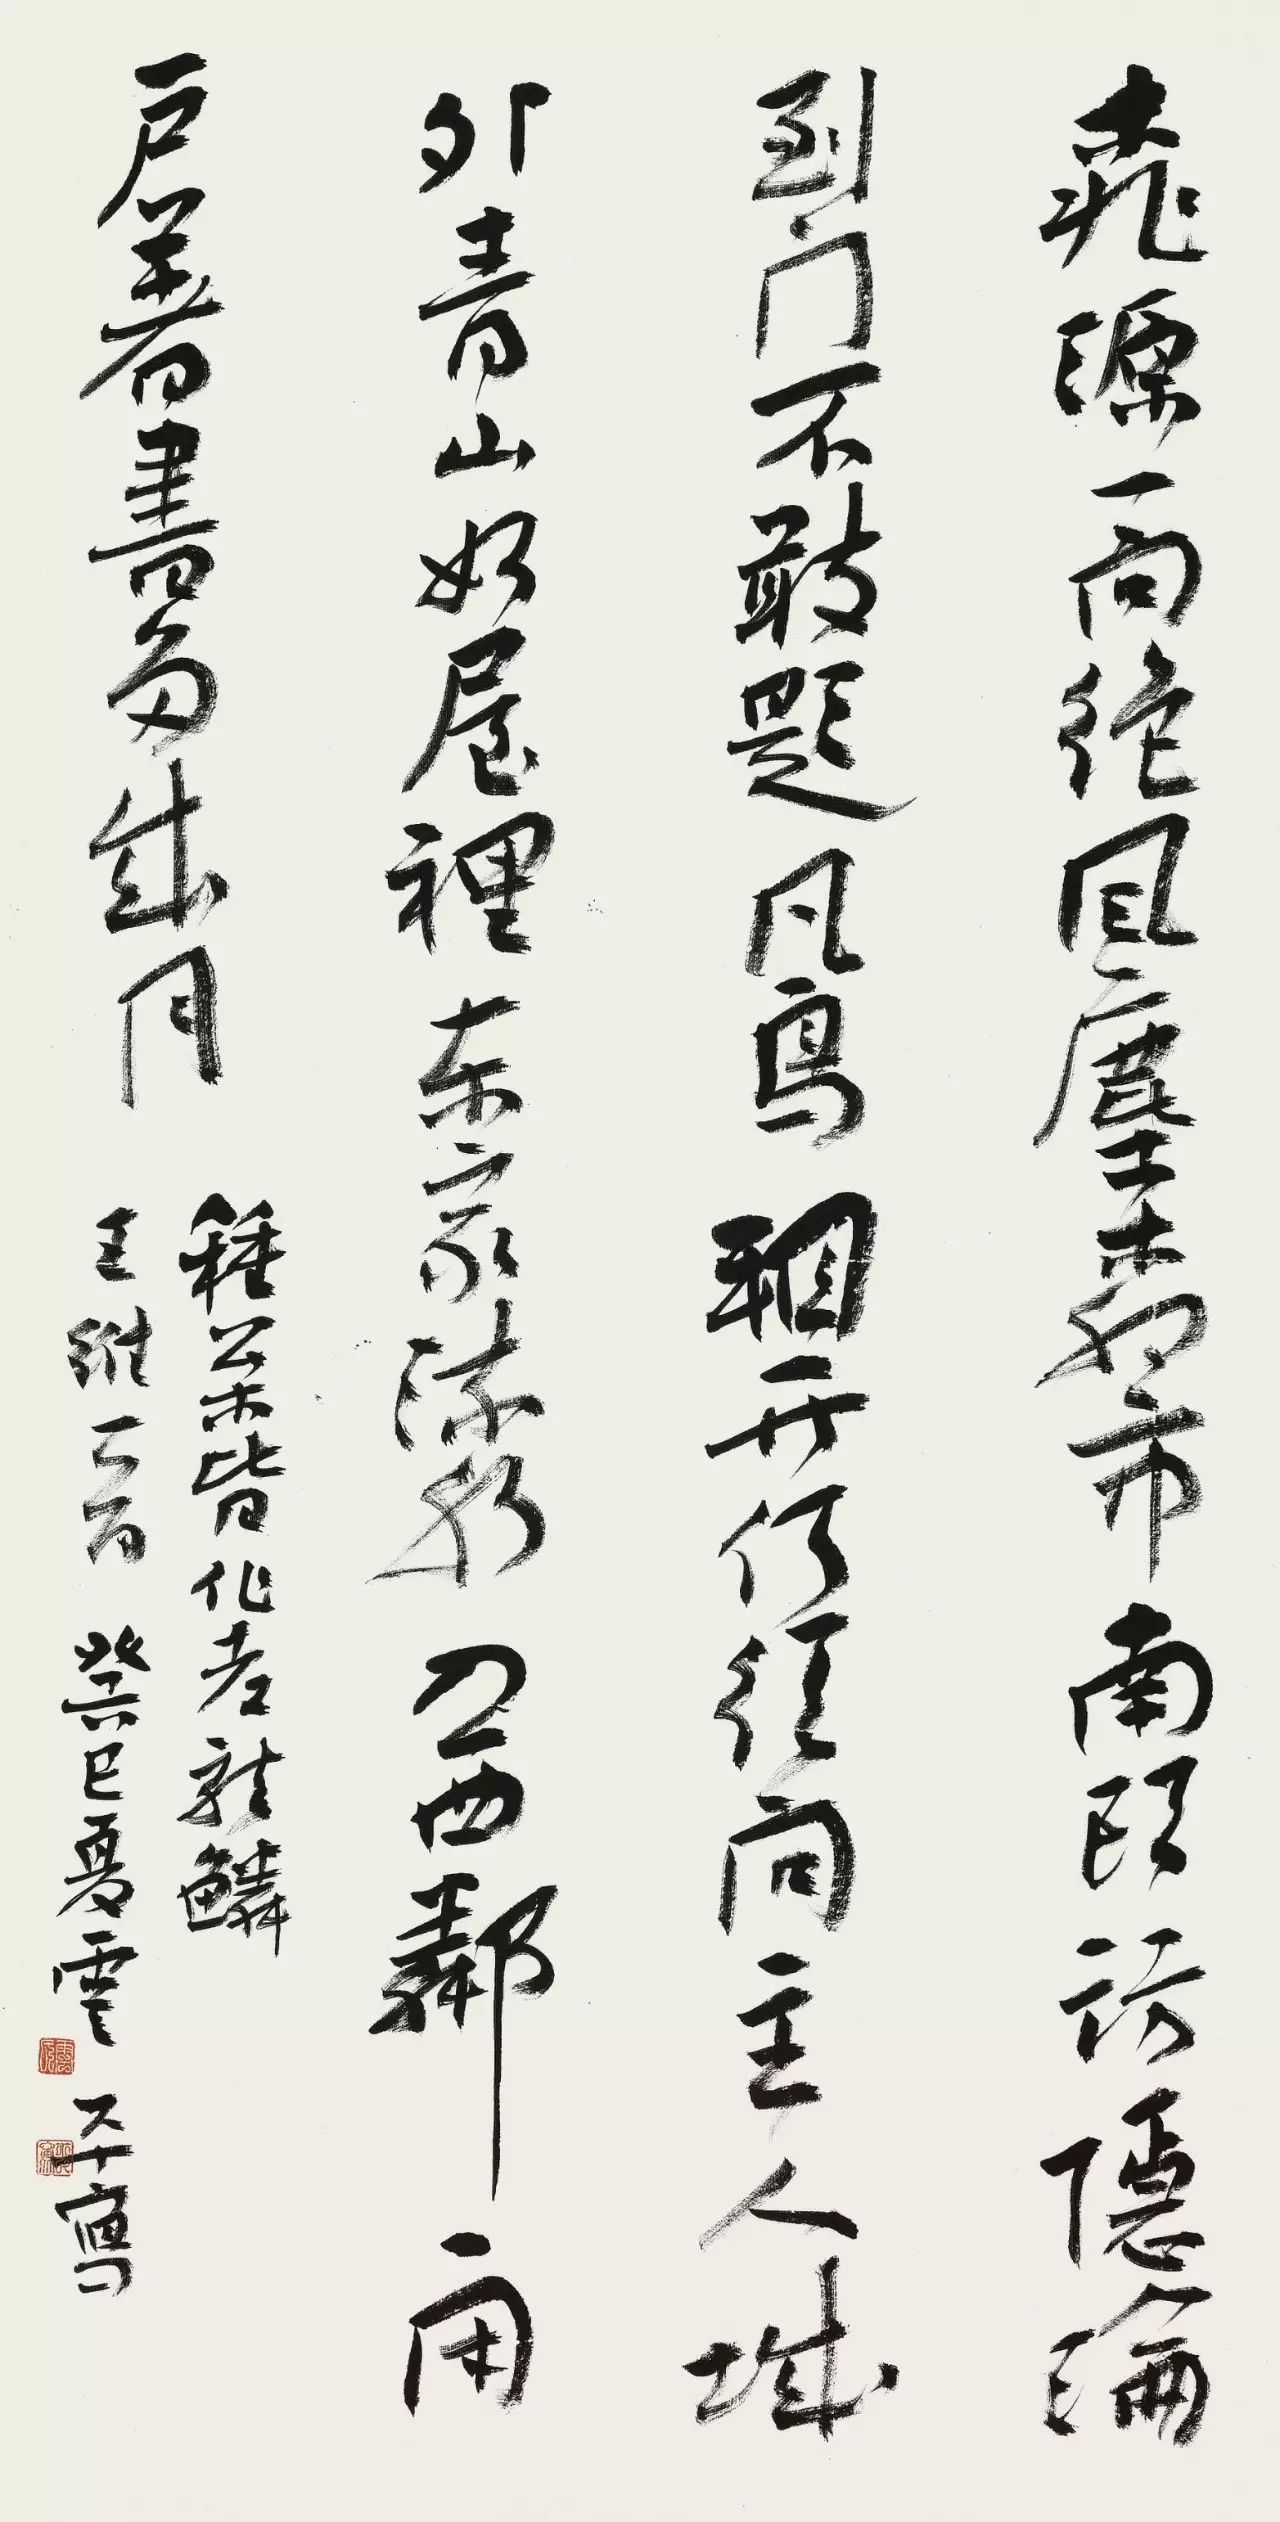 桃源一向絕風塵柳市南頭訪隱淪
到门不敢題凡鳥看竹何須问主人城
外青山如屋裡東家流水入西鄰閉
户著書多歲月
種松皆作老龍鱗
王維一首 癸巳夏雲寫